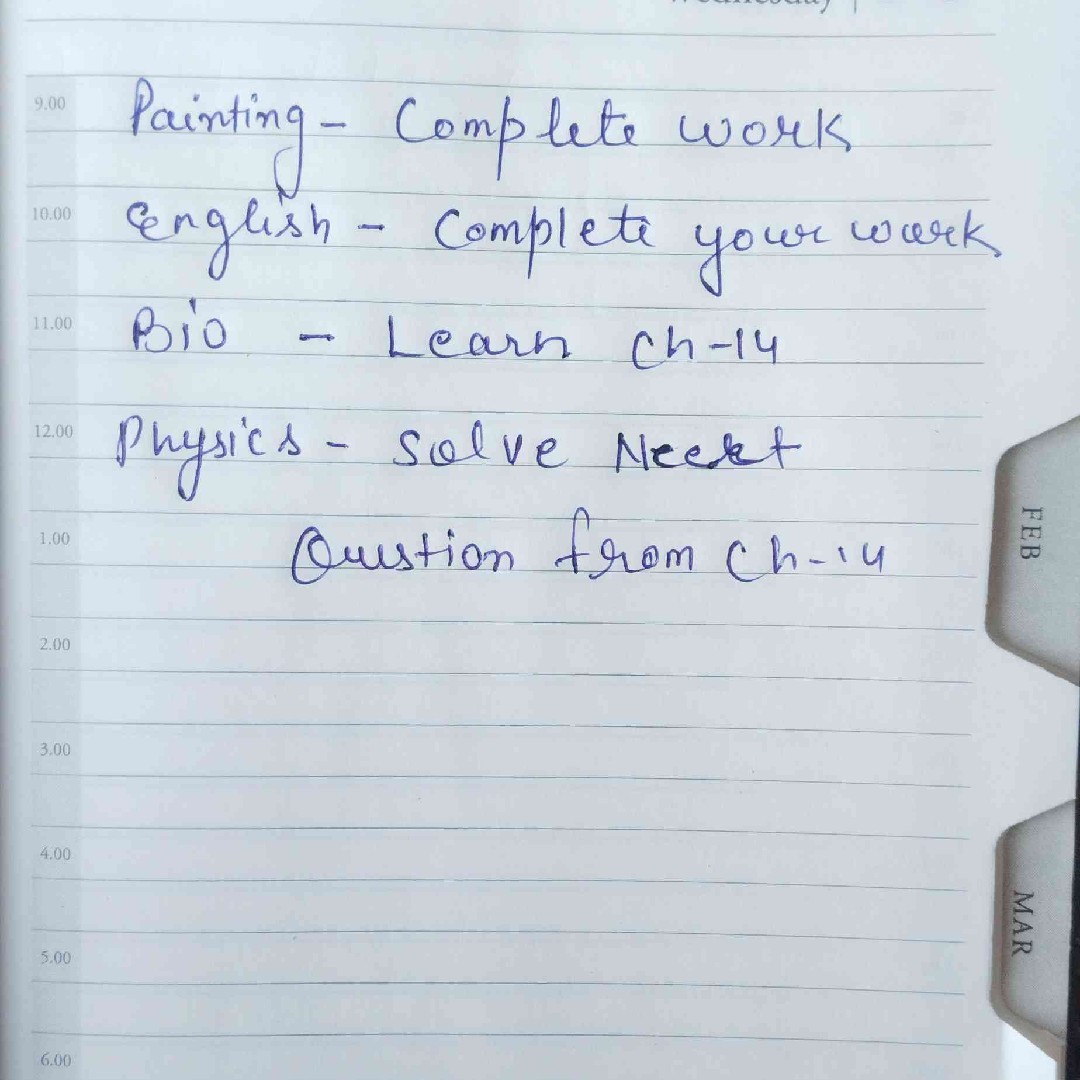 Wednesday
9.00 Painting - Complete work
10.00 English - Complete your work
11.00 Bio - Learn Ch-14
12.00 Physics - Solve Neet
1.00 Question from Ch-14
2.00
FEB
3.00
4.00
MAR
5.00
6.00